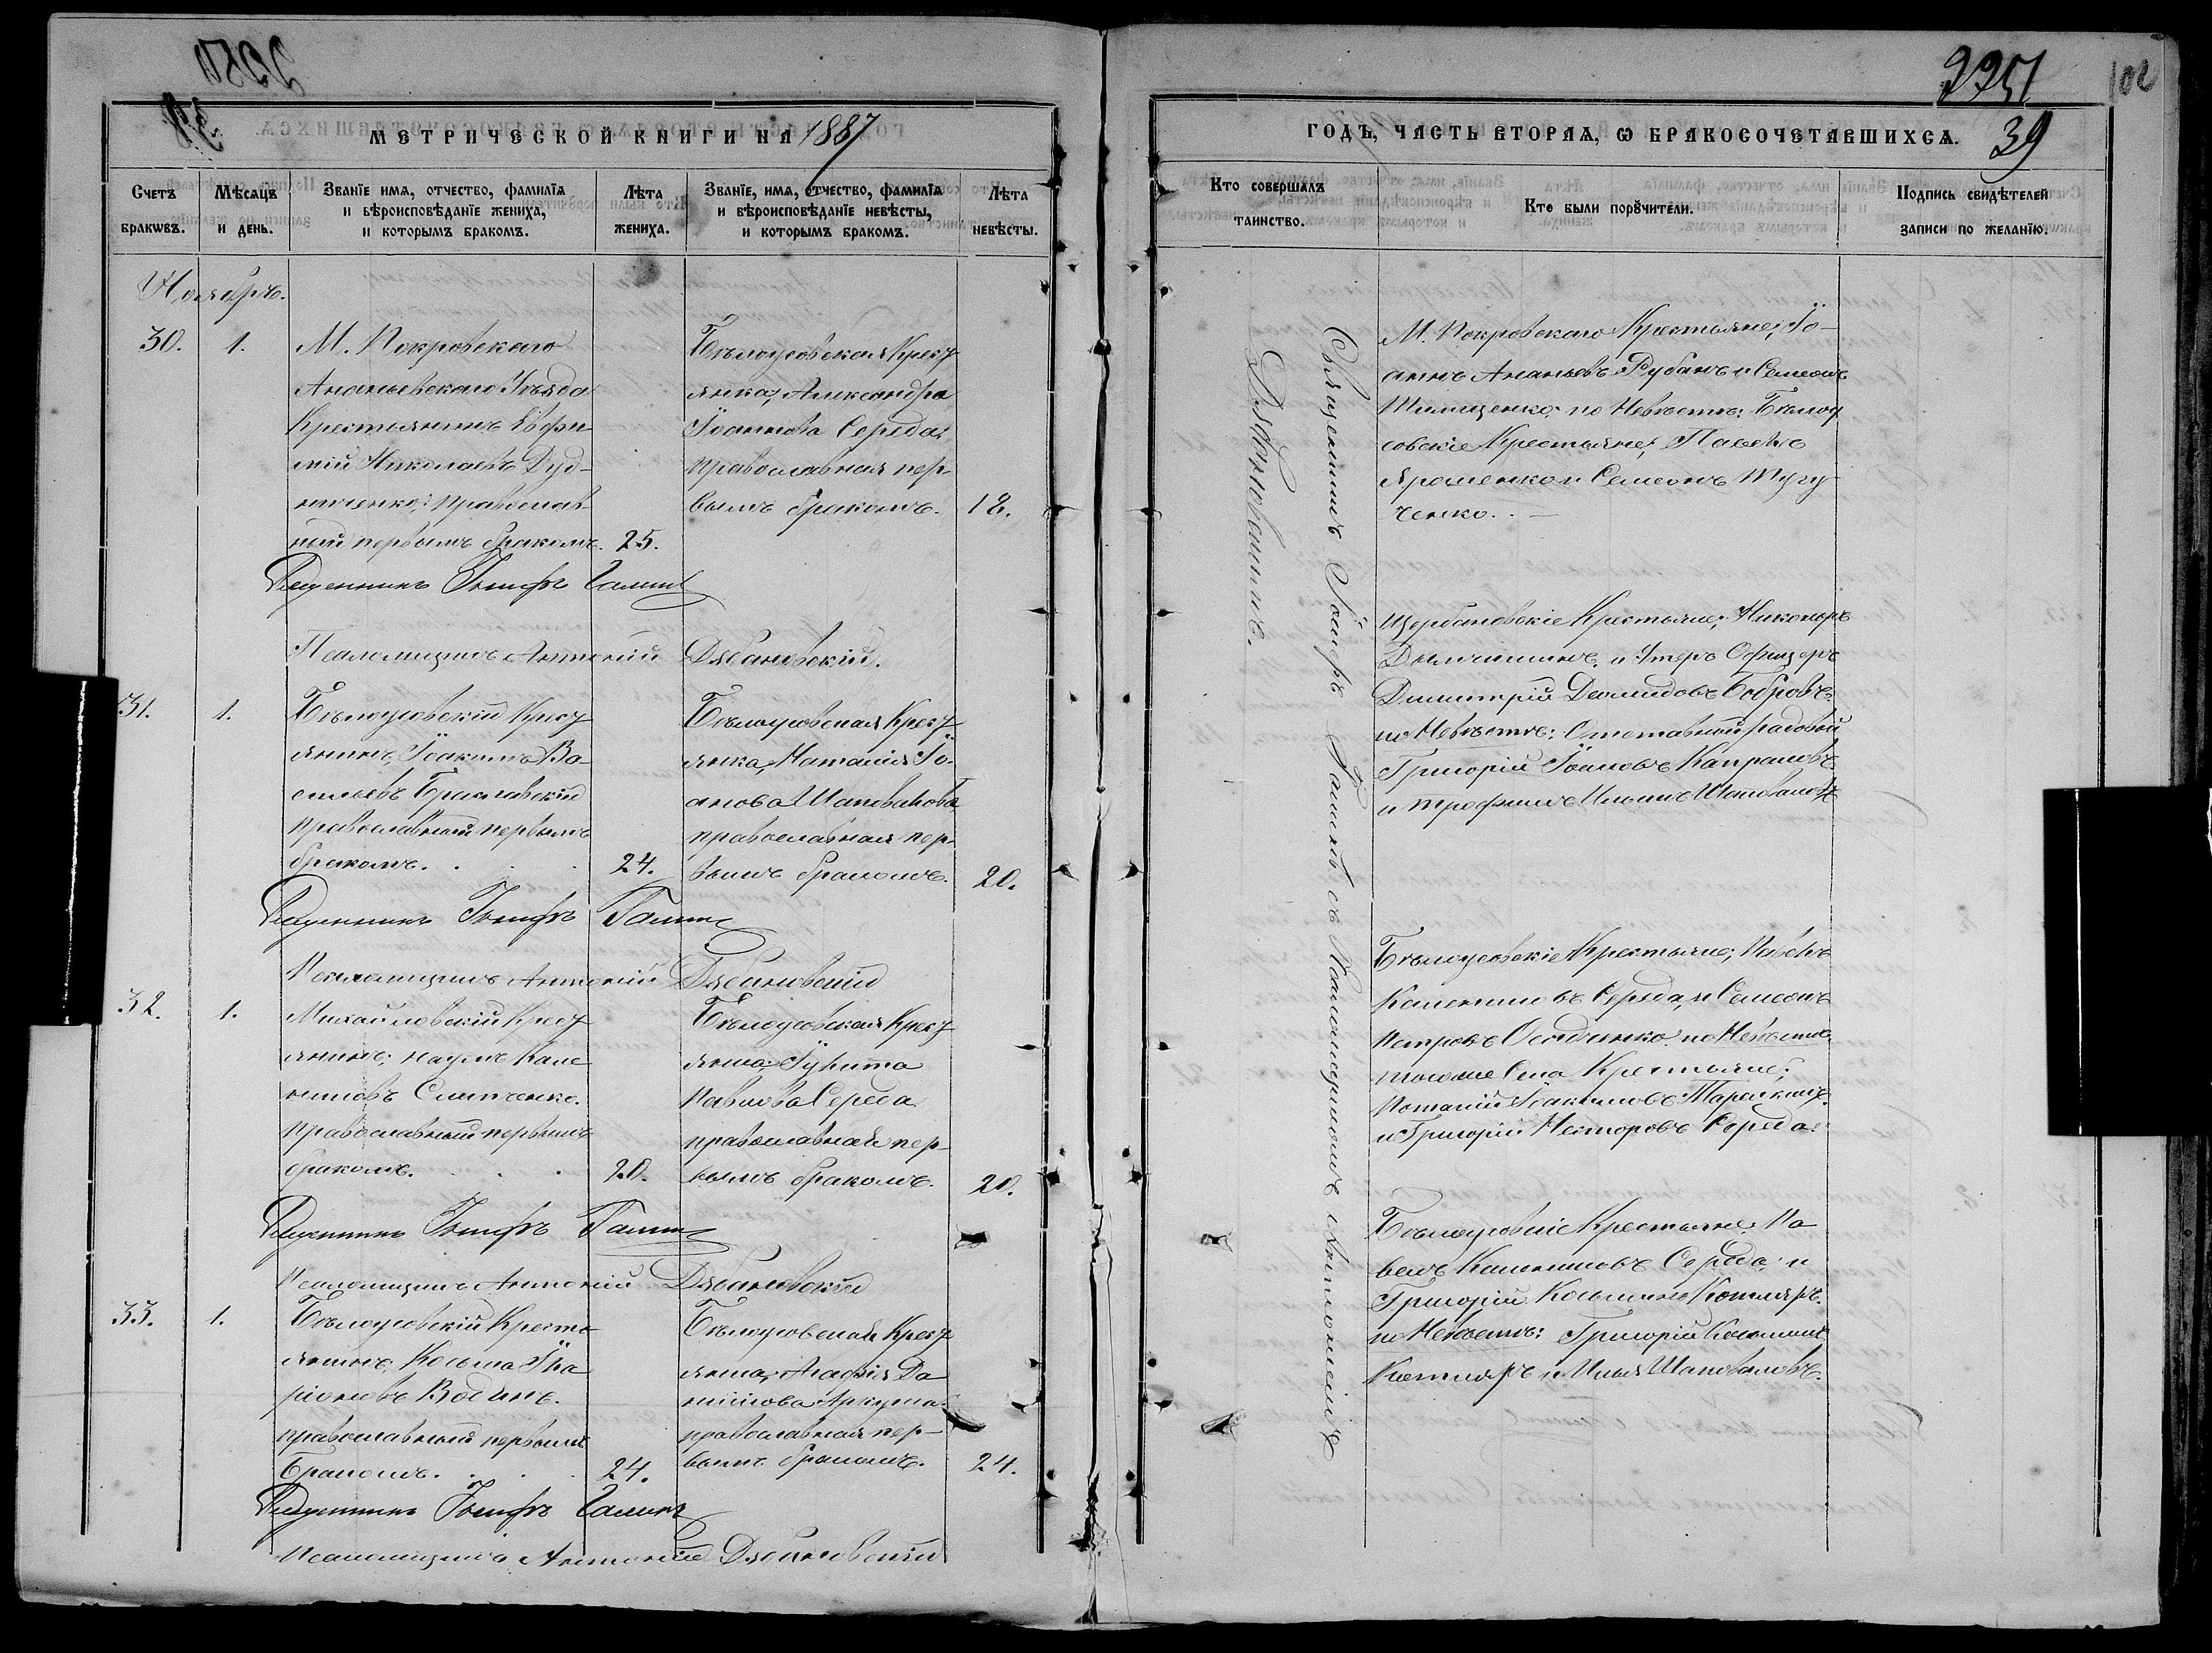 2251
102
МЕТРИЧЕСКОЙ КНИГИ НА 1887
Счетъ браковъ.
Мѣсяцъ и день.
Званїе имя, отчество, фамилїя и вѣроисповѣданїе жениха, и которымъ бракомъ.
Лѣта жениха.
Званїе, имя, отчество, фамилїя и вѣроисповѣданїе невѣсты, и которымъ бракомъ.
Лѣта невѣсты.
Ноябрь.
30.
1.
М. Покровскаго
Ананьевскаго Уѣзда
Крестьянинъ Евфи
мій Николаевъ Дуд-
православ
ный первымъ бракомъ.
25.
Бѣлоусовская Крест
янка, Александра
Іоаннова Середа;
православная пер-
вымъ бракомъ.
18.
Священникъ Іосифъ Галинъ
Псаломщикъ Антоній Дзбановскій.
31.
1.
Бѣлоусовскій Крест
янинъ, Іоакимъ Ва
сильевъ Браславскій
православный первымъ
бракомъ.
24.
Бѣлоусовская Крест
янка, Наталія Іо-
анова Шаповалова,
православная пер-
вымъ бракомъ.
20.
Священникъ Іосифъ Галинъ
Псаломщикъ Антоній Дзбановскій
32.
1.
Михайловскій Крест
янинъ; Наумъ Кале
никовъ
православный первымъ
бракомъ.
20.
Бѣлоусовская Крест
янка, Іулита
Павлова Середа
православная пер-
вымъ бракомъ.
20.
Священникъ Іосифъ Галинъ
Псаломщикъ Антоній Дзбановскій
33.
1.
Бѣлоусовскій Кресть
янинъ, Косьма Ила
ріоновъ
православный первымъ
бракомъ.
24.
Бѣлоусовская Крест
янка, Агафія Да
ниилова
православная пер-
вымъ бракомъ.
24.
Священникъ Іосифъ Галинъ
Псаломщикъ Антоній Дзбановскій
ГОДЪ, ЧАСТЬ ВТОРАЯ, Ѡ БРАКОСОЧЕТАВШИХСЯ.
39
Кто совершалъ таинство.
Кто были порꙋчители.
Подпись свидѣтелей записи по желанїю.
Священникъ Іосифъ Галинъ съ Псаломщикомъ Антоніемъ
Дзбановскимъ.
М. Покровскаго Крестьяне; Іо-
аннъ Ананьевъ Рубанъ и Семеонъ
Тимищенко; по Невѣстѣ: Бѣлоу
совскіе Крестьяне; Павелъ
Яроменко и Семеонъ Тугу
ченко.
Щербановскіе Крестьяне; Никаноръ
и Унтеръ Офицеръ
Димитрій Бобровъ;
по Невѣстѣ: Отставной рядовой
Григорій Іоановъ Капрановъ
и Трофимъ Ильинъ Шаповаловъ
Бѣлоусовскіе Крестьяне; Павелъ
Калениковъ Середа, и Семеонъ
Петровъ по Невѣстѣ:
тогоже Села Крестьяне;
Потапій Іоакимовъ
и Григорій Несторовъ Середа.
Бѣлоусовскіе Крестьяне; Па
велъ Калениковъ Середа; и
Григорій Косьминъ Котляръ.
по Невѣстѣ: Григорій Косьминъ
Котляръ и Илья Шаповаловъ.